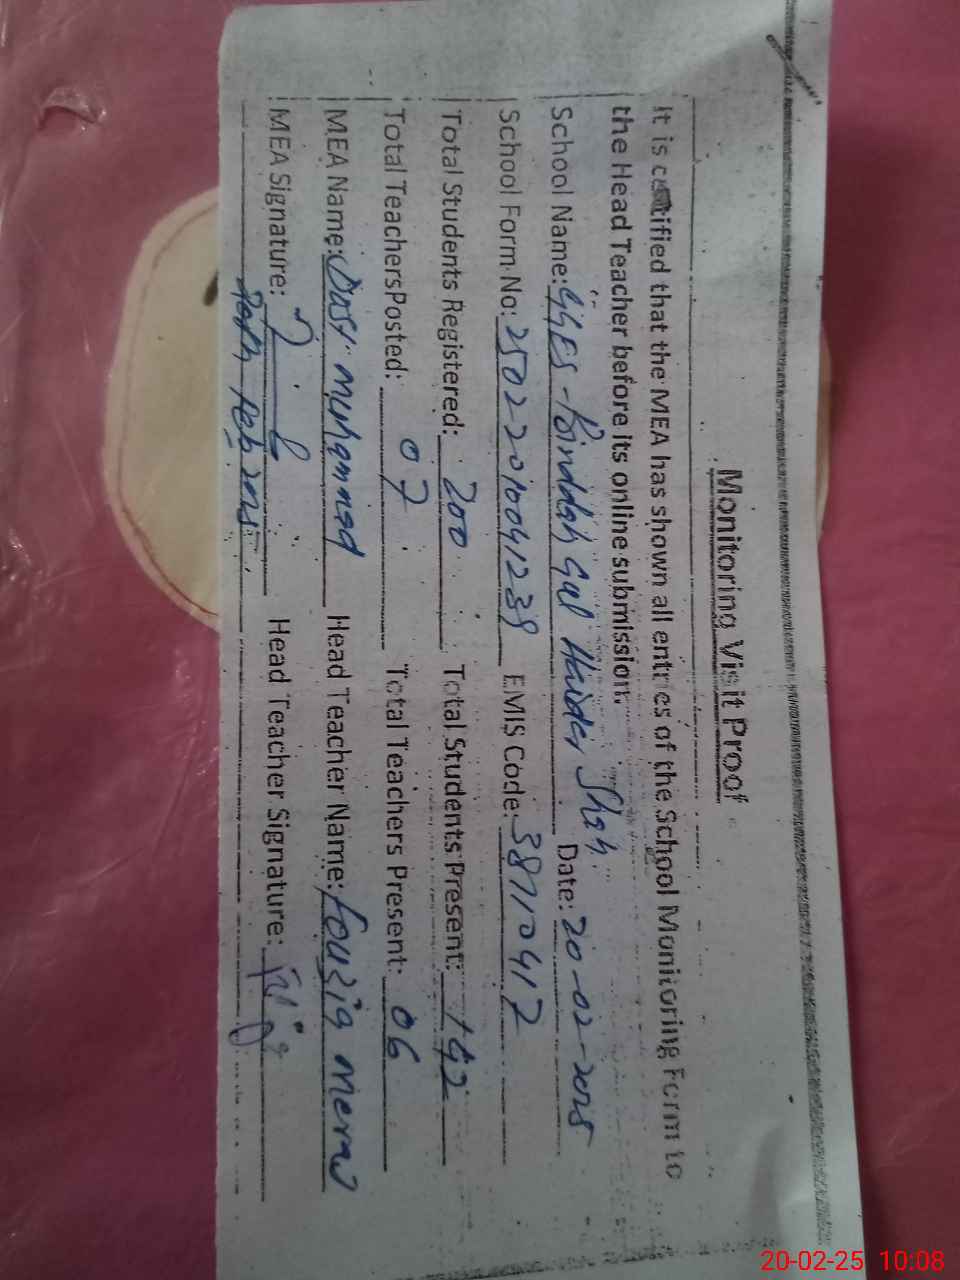 Monitoring Visit Proof
It is certified that the MEA has shown all entries of the School Monitoring Form to
the Head Teacher before its online submission.
School Name: GGES - Pinddah Gul Haider Shah Date: 20-02-2025
School Form No: EMIS Code: 38710412
Total Students Registered: 200 Total Students Present: 142
Total TeachersPosted: 07 Total Teachers Present: 06
MEA Name: Dost Muhammad Head Teacher Name: Fouzia
MEA Signature: Head Teacher Signature:
20th Feb 2025
20-02-25 10:08